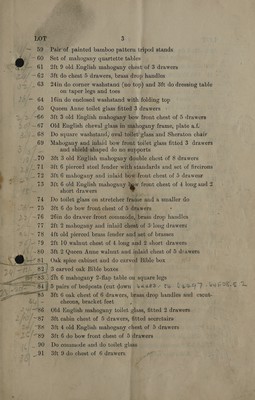 LOT 3
59 Pair of painted bamboo pattern tripod stands
60 Set of mahogany quartette tables
61 2ft 9 old English mahogany chest of 3 drawers
62 3ft do chest 5 drawers, brass drop handles
63 24in do corner washstand (no top) and 3ft do dressing table
on taper legs and toes
64 16in do enclosed washstand with folding top
65 Queen Anne toilet glass fitted 3 drawers
66 3ft 3 old English mahogany bow front chest of 5 drawers
67 Old English cheval glass in mahogany frame, plate a.f.
68 Do square washstand, oval toilet glass and Sheraton chair
69 Mahogany and inlaid bow front toilet glass fitted 3 drawers
and shield shaped do on supports
70 3ft 3 old English mahogany double chest of 8 drawers
71 4ft 6 pierced steel fender with standards and set of fireirons
72 3ft 6 mahogany and inlaid bow front chest of 5 drawers
73 3ft 6 old English mahogany bow front chest of 4 long and 2
short drawers
74 Do toilet glass on stretcher frame and a smaller do
75 3ft 6 do bow front chest of 5 drawers
76 26in do drawer front commode, brass drop handles
77 2ft 2 mahogany and inlaid chest of 3 long drawers
78 4ft old pierced brass fender and set of brasses
79 2ft 10 walnut chest of 4 long and 2 short drawers
80 3ft 2 Queen Anne walnut and inlaid chest of 5 drawers
81 Oak spice cabinet and do carved Bible box
82 3 carved oak Bible boxes
83 2ft 6 mahogany 2-flap table on square legs
84 3 pairs of bedposts (cut down
85 3ft 6 oak chest of 6 drawers, brass drop handles and escut-
cheons, bracket feet
86 Old English mahogany toilet glass, fitted 2 drawers
87 3ft cabin chest of 5 drawers, fitted secretaire
88 3ft 4 old English mahogany chest of 5 drawers
89 3ft 6 do bow front chest of 5 drawers
90 Do commode and do toilet glass
91 3ft 9 do chest of 6 drawers